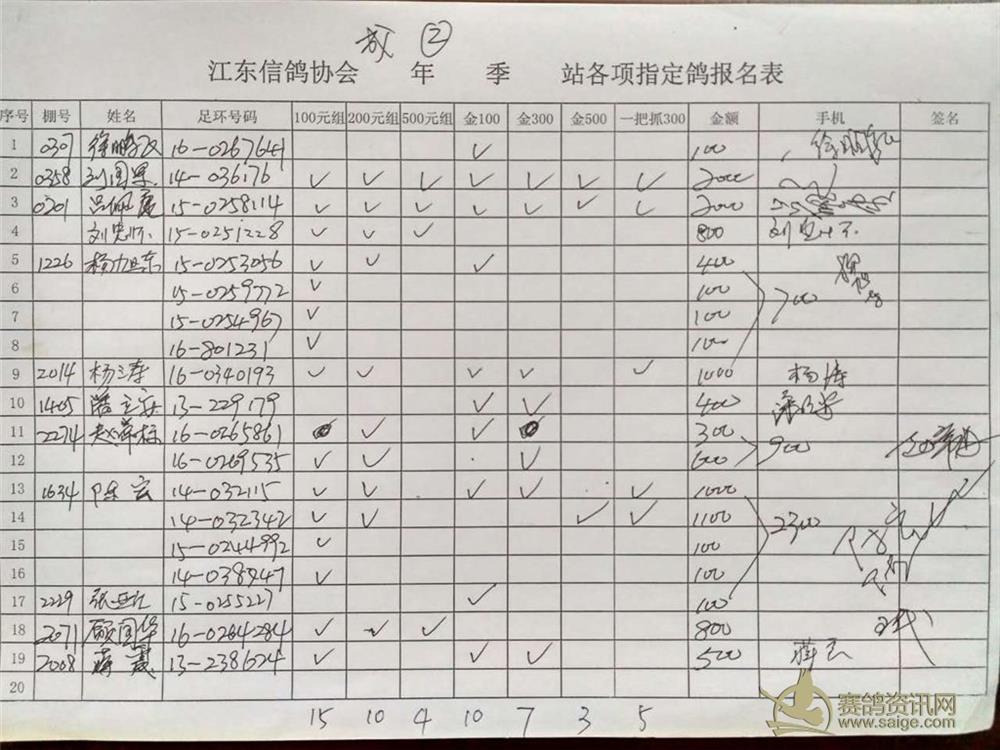 ②
江东信鸽协会 年 季 站各项指定鸽报名表
序号 棚号 姓名 足环号码 100元组 200元组 500元组 金100 金300 金500 一把抓300 金额 手机 签名
1 0307 徐鹏飞 16-0267641 ✓ 100
2 0358 刘国军 14-036176 ✓ ✓ ✓ ✓ ✓ ✓ ✓ 2000
3 0201 吕佩庭 15-0258114 ✓ ✓ ✓ ✓ ✓ ✓ ✓ 2000
4 刘忠怀 15-0251228 ✓ ✓ ✓ 800 刘忠怀
5 1226 杨旭东 15-0253056 ✓ ✓ ✓ 400
6 15-0259772 ✓ 100 700
7 15-0254967 ✓ 100
8 16-801231 ✓ 100
9 2014 杨涛 16-0340193 ✓ ✓ ✓ ✓ ✓ 1000 杨涛
10 1405 13-229179 ✓ ✓ 400
11 2274 赵 16-0265861 ✓ ✓ 300 900
12 16-0269535 ✓ ✓ ✓ 600
13 1634 陈宏 14-032115 ✓ ✓ ✓ ✓ ✓ 1000
14 14-032342 ✓ ✓ ✓ ✓ 1100 2300
15 15-0244992 ✓ 100
16 14-038947 ✓ 100
17 2229 张 15-0255227 ✓ 100
18 2071 顾国华 16-0264284 ✓ ✓ ✓ 800
19 2008 蒋 13-238624 ✓ ✓ ✓ 500
20
15 10 4 10 7 3 5
赛鸽资讯网
www.saige.com